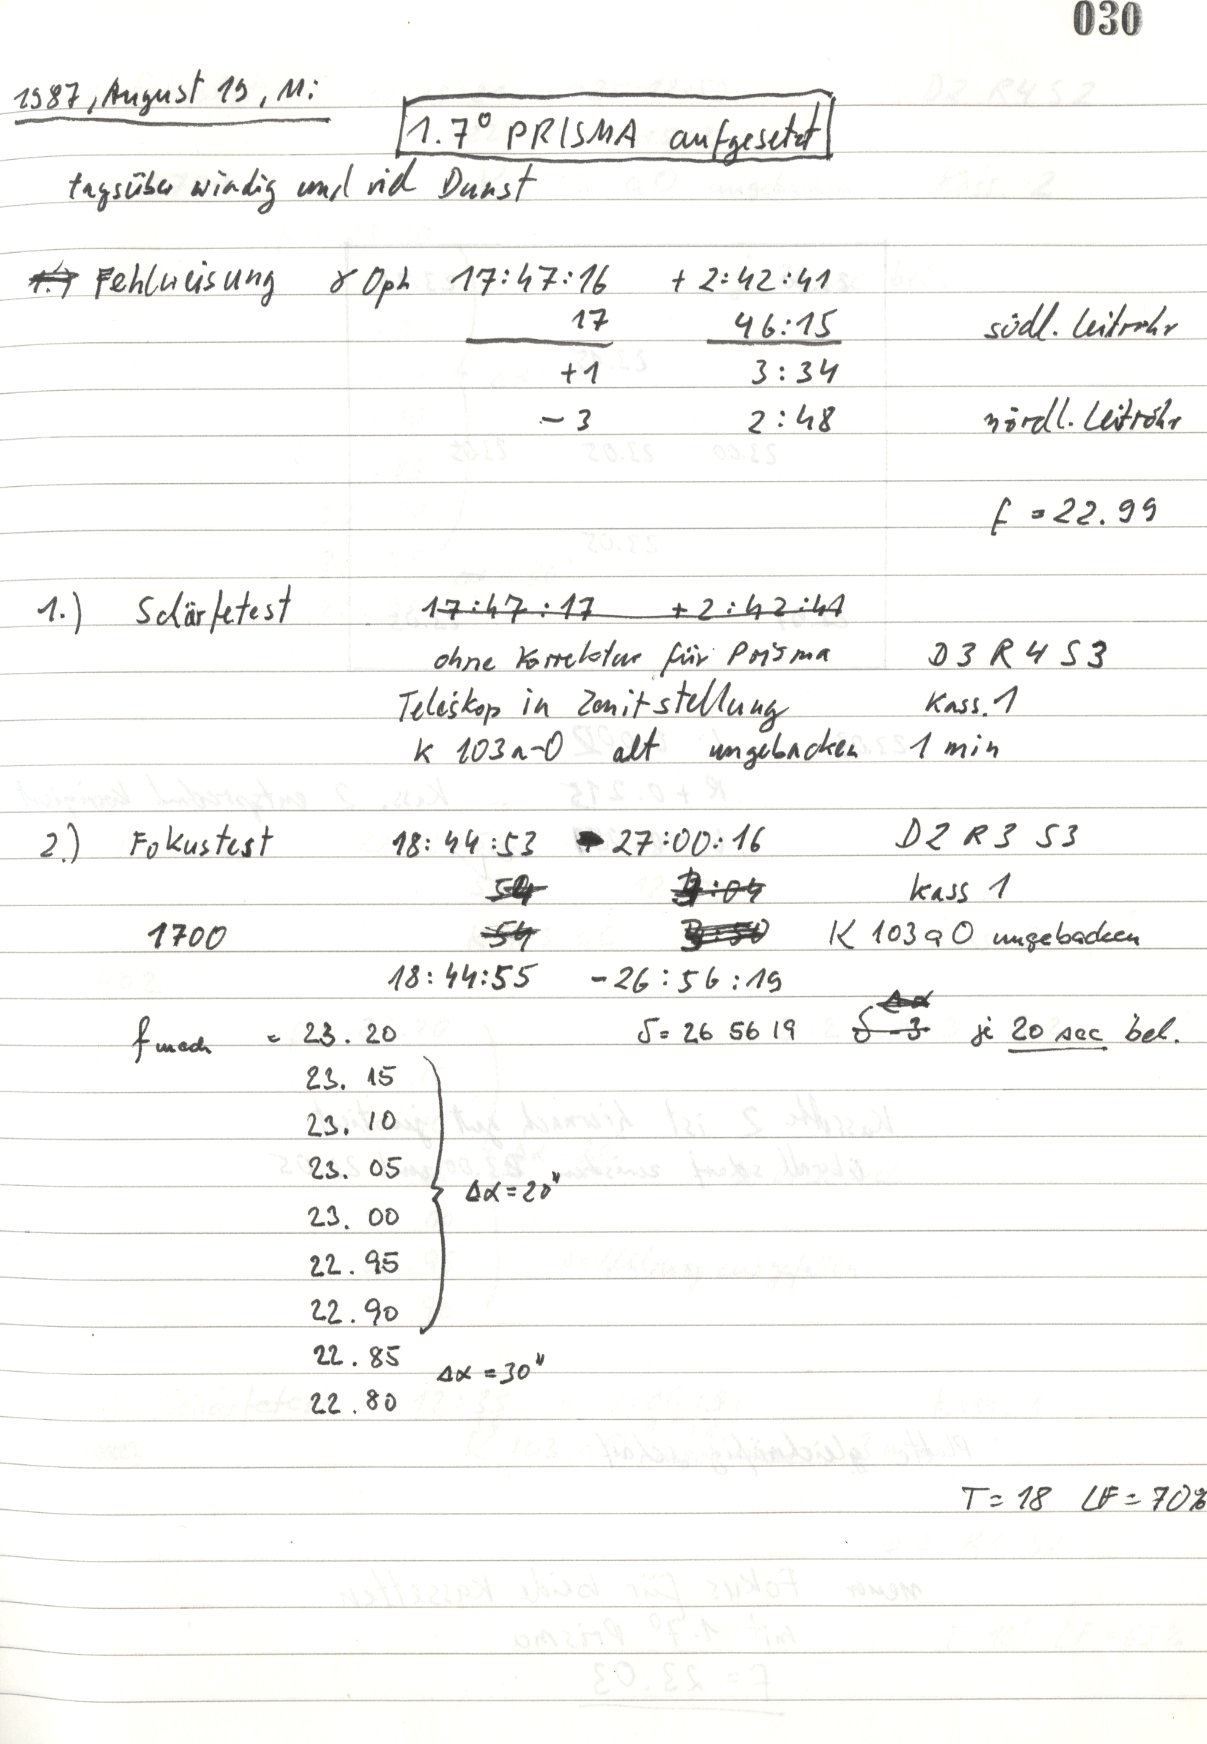 030
1987, August 19, Mi
1.7° PRISMA aufgesetzt
tagsüber windig und viel Dunst
1.) Fehlweisung γ Oph 17:47:16 + 2:42:41
17 46:15 südl. Leitrohr
+1 3:34
- 3 2:48 nördl. Leitrohr
f = 22.99
1.) Schärfetest 17:47:17 + 2:42:41
ohne Korrektur für Prisma D3 R4 S3
Teleskop in Zenitstellung Kass. 1
K 103a-O alt ungebacken 1 min
2.) Fokustest 18:44:53 27:00:16 D2 R3 S3
54 :04 Kass 1
1700 54 :50 K 103aO ungebacken
18:44:55 -26:56:19
Δα
f = 23.20 δ = 26 56 19 δ -3 je 20 sec bel.
23.15
23.10
23.05
Δα = 20"
23.00
22.95
22.90
22.85 Δα = 30"
22.80
T = 18 LF = 70%